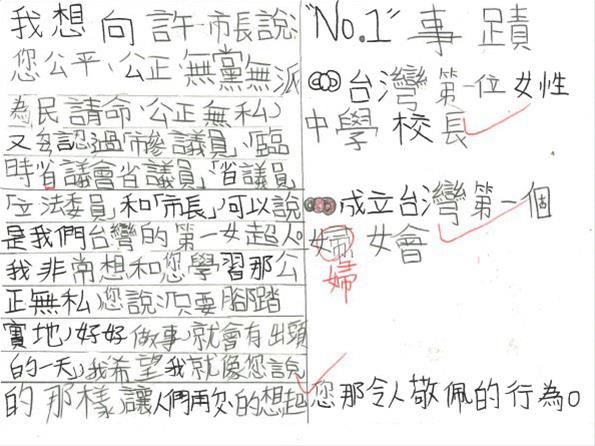 我想向許市長說
您公平、公正、無黨無派
為民請命,公正無私,
又認過市參議員,「臨
時省議會省議員」「省議員」
「立法委員」和「市長」,可以說
是我們台灣的第一女超人。
我非常想和您學習那公
正無私,您說只要腳踏
實地,好好做事就會有出頭
的一天,我希望我就像您說
的那樣讓人們再次的想起
"No.1" 事蹟
台灣第一位女性
中學校長
成立台灣第一個
婦女會
婦
您那令人敬佩的行為。